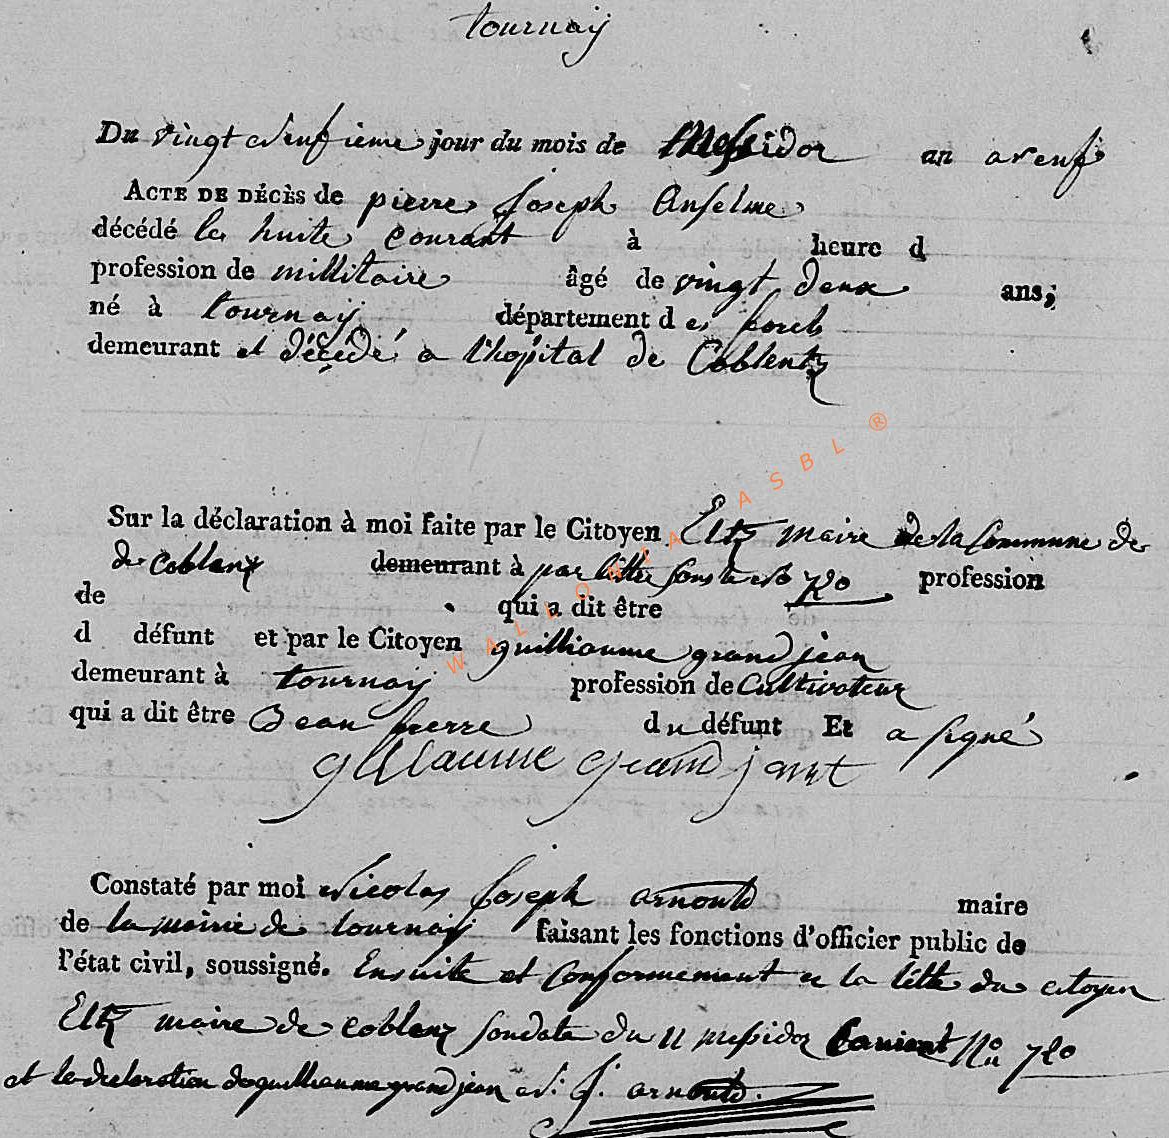 tournay
Du vingt neufieme jour du mois de Messidor an neuf
ACTE DE DÉCÈS de pierre Joseph Anselme
décédé le huite courant à heure d
profession de millitaire âgé de vingt deux ans;
né à tournay département des forets
demeurant et décédé a l'hopital de Coblentz
Sur la déclaration à moi faite par le Citoyen Eltz maire de la Commune de
de Coblenz demeurant à par lettre sous le no 720 profession
de qui a dit être
d défunt et par le Citoyen guilliaume grandjean
demeurant à tournay profession de Cultivateur
qui a dit être Beau frerre du défunt Et a signé
gillaume grandjant
Constaté par moi Nicolas Joseph arnould maire
de la mairie de tournay faisant les fonctions d'officier public de
l'état civil, soussigné. Ensuite et Conformement a la lette du citoyen
Eltz maire de coblenz soudate du 11 messidor Courant No 720
et la declaration de guilliaume grandjean N. J. arnould.
WALLONIA ASBL ®